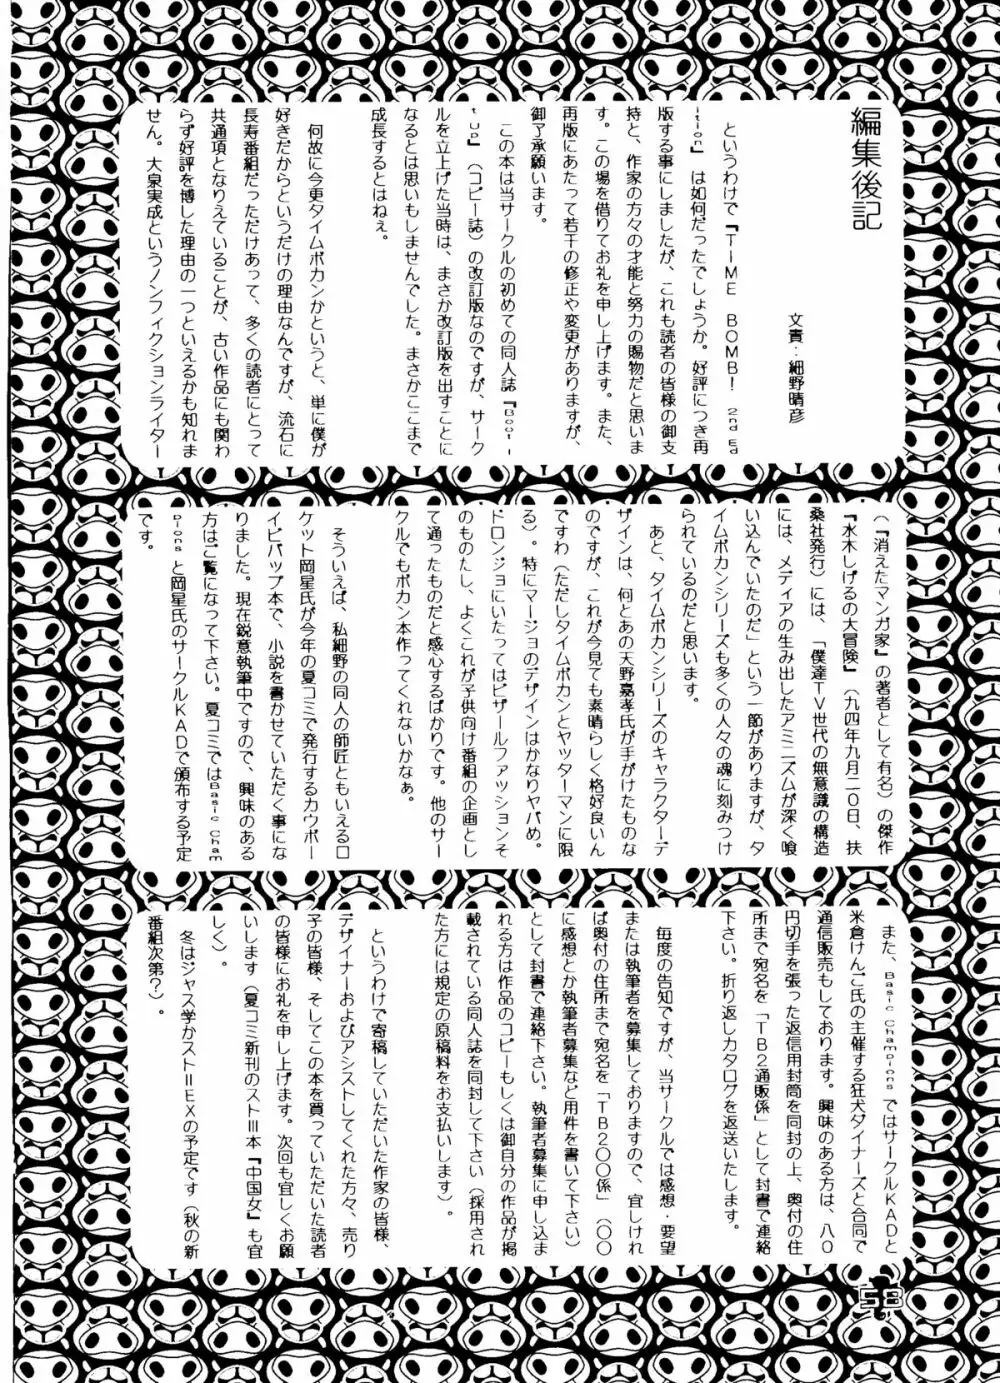 編集後記
文責：細野晴彦
というわけで『TIME BOMB! 2nd Ed
ition』は如何だったでしょうか。好評につき再
版する事にしましたが、これも読者の皆様の御支
持と、作家の方々の才能と努力の賜物だと思いま
す。この場を借りてお礼を申し上げます。また、
再版にあたって若干の修正や変更がありますが、
御了承願います。
この本は当サークルの初めての同人誌『Boot
up』（コピー誌）の改訂版なのですが、サーク
ルを立上げた当時は、まさか改訂版を出すことに
なるとは思いもしませんでした。まさかここまで
成長するとはねぇ。
何故に今更タイムボカンかというと、単に僕が
好きだからというだけの理由なんですが、流石に
長寿番組だっただけあって、多くの読者にとって
共通項となりえていることが、古い作品にも関わ
らず好評を博した理由の一つといえるかも知れま
せん。大泉実成というノンフィクションライター
（『消えたマンガ家』の著者として有名）の傑作
『水木しげるの大冒険』（九四年九月二〇日、扶
桑社発行）には、「僕達TV世代の無意識の構造
には、メディアの生み出したアミニズムが深く喰
い込んでいたのだ」という一節がありますが、タ
イムボカンシリーズも多くの人々の魂に刻みつけ
られているのだと思います。
あと、タイムボカンシリーズのキャラクターデ
ザインは、何とあの天野嘉孝氏が手がけたものな
のですが、これが今見ても素晴らしく格好良いん
ですわ（ただしタイムボカンとヤッターマンに限
る）。特にマージョのデザインはかなりヤバめ。
ドロンジョにいたってはビザールファッションそ
のものだし、よくこれが子供向け番組の企画とし
て通ったものだと感心するばかりです。他のサー
クルでもボカン本作ってくれないかなぁ。
そういえば、私細野の同人の師匠ともいえるロ
ケット岡星氏が今年の夏コミで発行するカウボー
イビバップ本で、小説を書かせていただく事にな
りました。現在鋭意執筆中ですので、興味のある
方はご覧になって下さい。夏コミではBasic Cham
pionsと岡星氏のサークルKADで頒布する予定
です。
また、Basic ChampionsではサークルKADと
米倉けんご氏の主催する狂犬ダイナーズと合同で
通信販売もしております。興味のある方は、八〇
円切手を張った返信用封筒を同封の上、奥付の住
所まで宛名を「TB2通販係」として封書で連絡
下さい。折り返しカタログを返送いたします。
毎度の告知ですが、当サークルでは感想・要望
または執筆者を募集しておりますので、宜しけれ
ば奥付の住所まで宛名を「TB2〇〇係」（〇〇
に感想とか執筆者募集など用件を書いて下さい）
として封書で連絡下さい。執筆者募集に申し込ま
れる方は作品のコピーもしくは御自分の作品が掲
載されている同人誌を同封して下さい（採用され
た方には規定の原稿料をお支払いします）。
というわけで寄稿していただいた作家の皆様、
デザイナーおよびアシストしてくれた方々、売り
子の皆様、そしてこの本を買っていただいた読者
の皆様にお礼を申し上げます。次回も宜しくお願
いします（夏コミ新刊のストⅢ本『中国女』も宜
しく）。
冬はジャス学かストⅡEXの予定です（秋の新
番組次第？）。
58